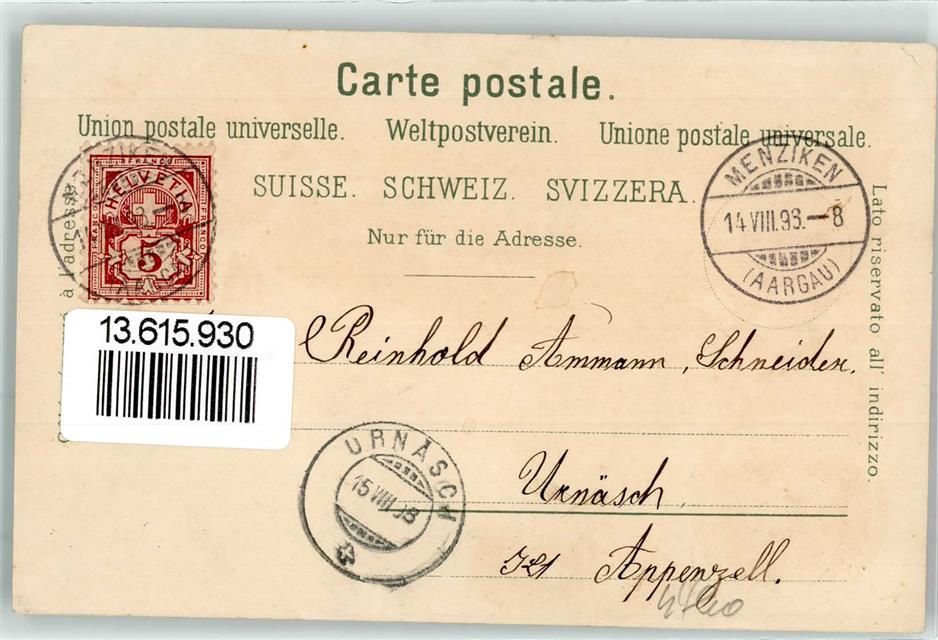 Carte postale.
Union postale universelle. Weltpostverein. Unione postale universale.
SUISSE. SCHWEIZ. SVIZZERA.
Nur für die Adresse.
à l'adresse
Lato riservato all' indirizzo.
FRANCO
HELVETIA
FRANCO
FRANCO
5
MENZIKEN
14 VIII.98.–8
(AARGAU)
13.615.930
Reinhold Ammann, Schneider,
Urnäsch,
Kt Appenzell.
URNÄSCH
15 VIII 98